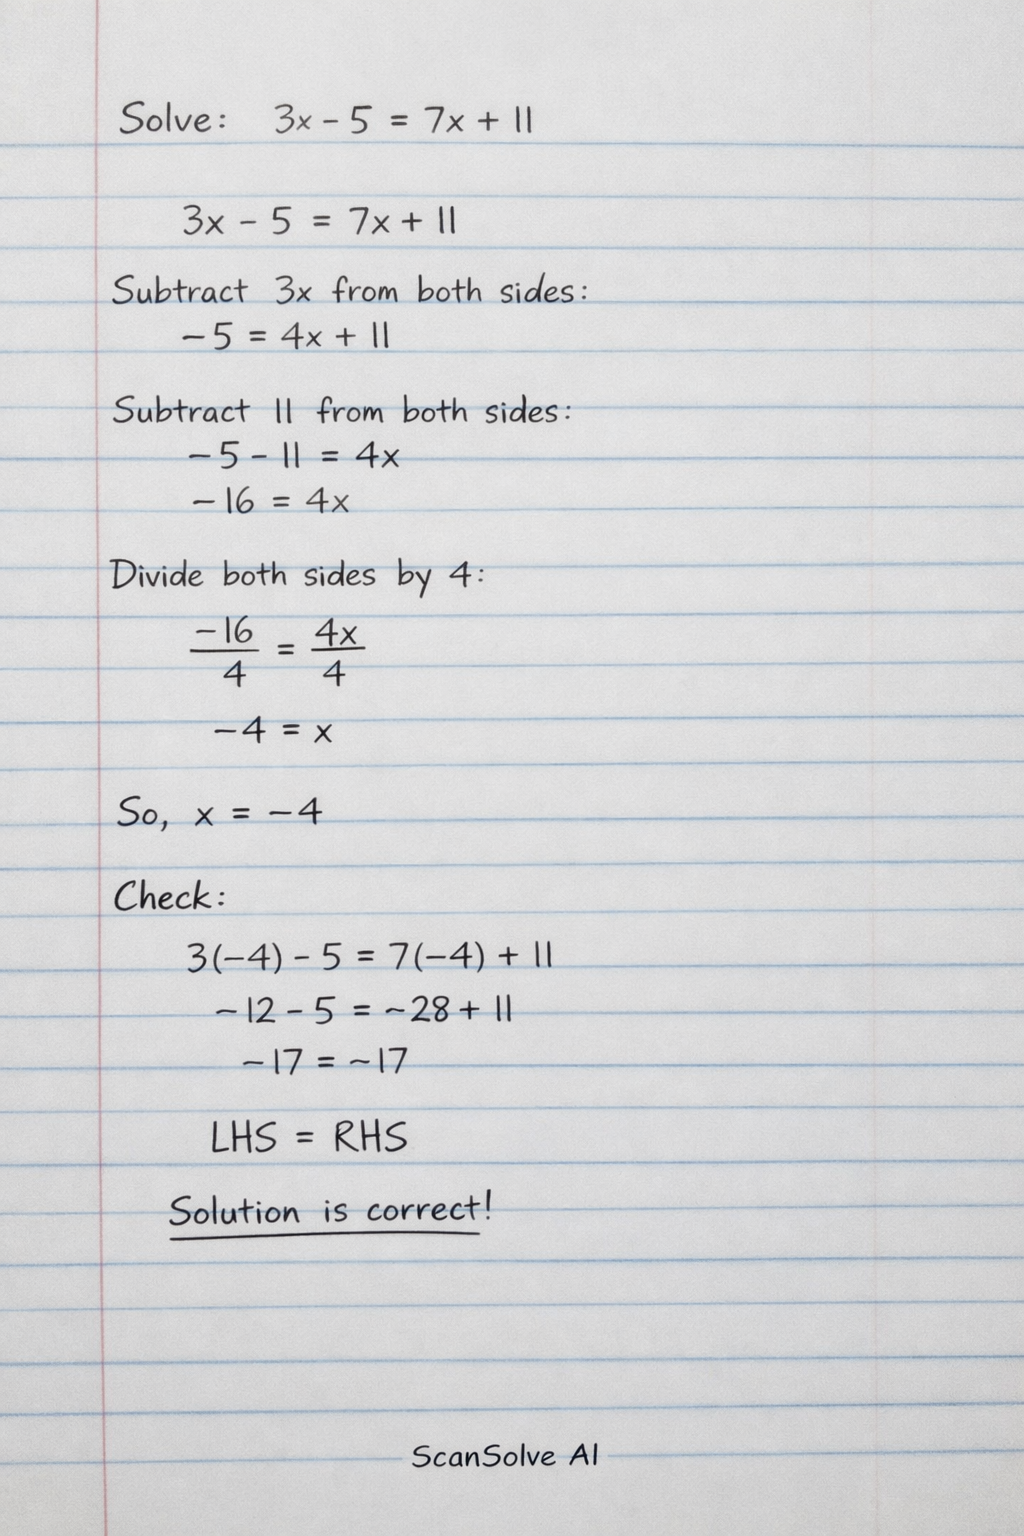 Solve: 3x - 5 = 7x + 11
3x - 5 = 7x + 11
Subtract 3x from both sides:
-5 = 4x + 11
Subtract 11 from both sides:
-5 - 11 = 4x
-16 = 4x
Divide both sides by 4:
-16/4 = 4x/4
-4 = x
So, x = -4
Check:
3(-4) - 5 = 7(-4) + 11
-12 - 5 = -28 + 11
-17 = -17
LHS = RHS
Solution is correct!
ScanSolve AI